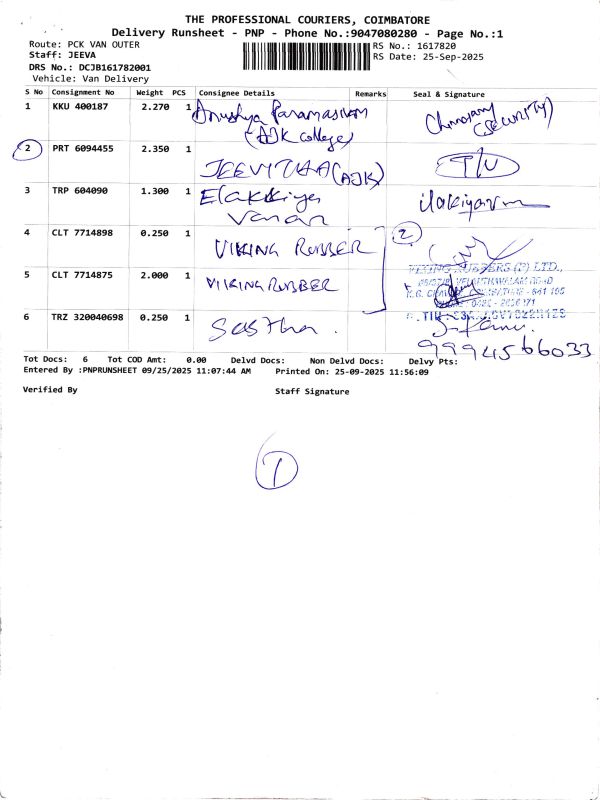 THE PROFESSIONAL COURIERS, COIMBATORE
Delivery Runsheet - PNP - Phone No.:9047080280 - Page No.:1
Route: PCK VAN OUTER
RS No.: 1617820
Staff: JEEVA
RS Date: 25-Sep-2025
DRS No.: DCJB161782001
Vehicle: Van Delivery
S No Consignment No Weight PCS Consignee Details Remarks Seal & Signature
1 KKU 400187 2.270 1 Anushya Paramasivam (SECURITY)
(AJK College)
2 PRT 6094455 2.350 1 JEEVITHAA (AJK)
3 TRP 604090 1.300 1 Elakkiya
Vanan
4 CLT 7714898 0.250 1 VIKING RUBBER 2
VIKING RUBBERS (P) LTD.,
5 CLT 7714875 2.000 1 VIKING RUBBER
6 TRZ 320040698 0.250 1 Sastha.
99945 66033
Tot Docs: 6 Tot COD Amt: 0.00 Delvd Docs: Non Delvd Docs: Delvy Pts:
Entered By :PNPRUNSHEET 09/25/2025 11:07:44 AM Printed On: 25-09-2025 11:56:09
Verified By Staff Signature